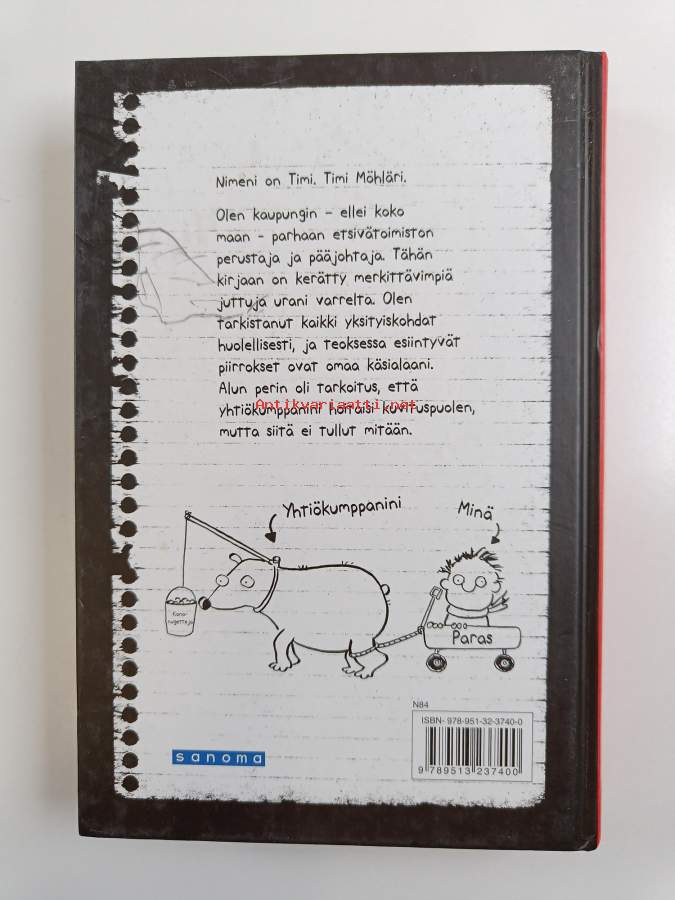 Nimeni on Timi, Timi Möhläri.
Olen kaupungin - ellei koko
maan - parhaan etsivätoimiston
perustaja ja pääjohtaja. Tähän
kirjaan on kerätty merkittävimpiä
juttuja urani varrelta. Olen
tarkistanut kaikki yksityiskohdat
huolellisesti, ja teoksessa esiintyvät
piirrokset ovat omaa käsialaani.
Alun perin oli tarkoitus, että
Antikvariaatti.net
yhtiökumppanini hoitaisi kuvituspuolen,
mutta siitä ei tullut mitään.
Yhtiökumppanini
Minä
Kana-
nugetteja
Paras
N84
ISBN- 978-951-32-3740-0
9 789513 237400
sanoma